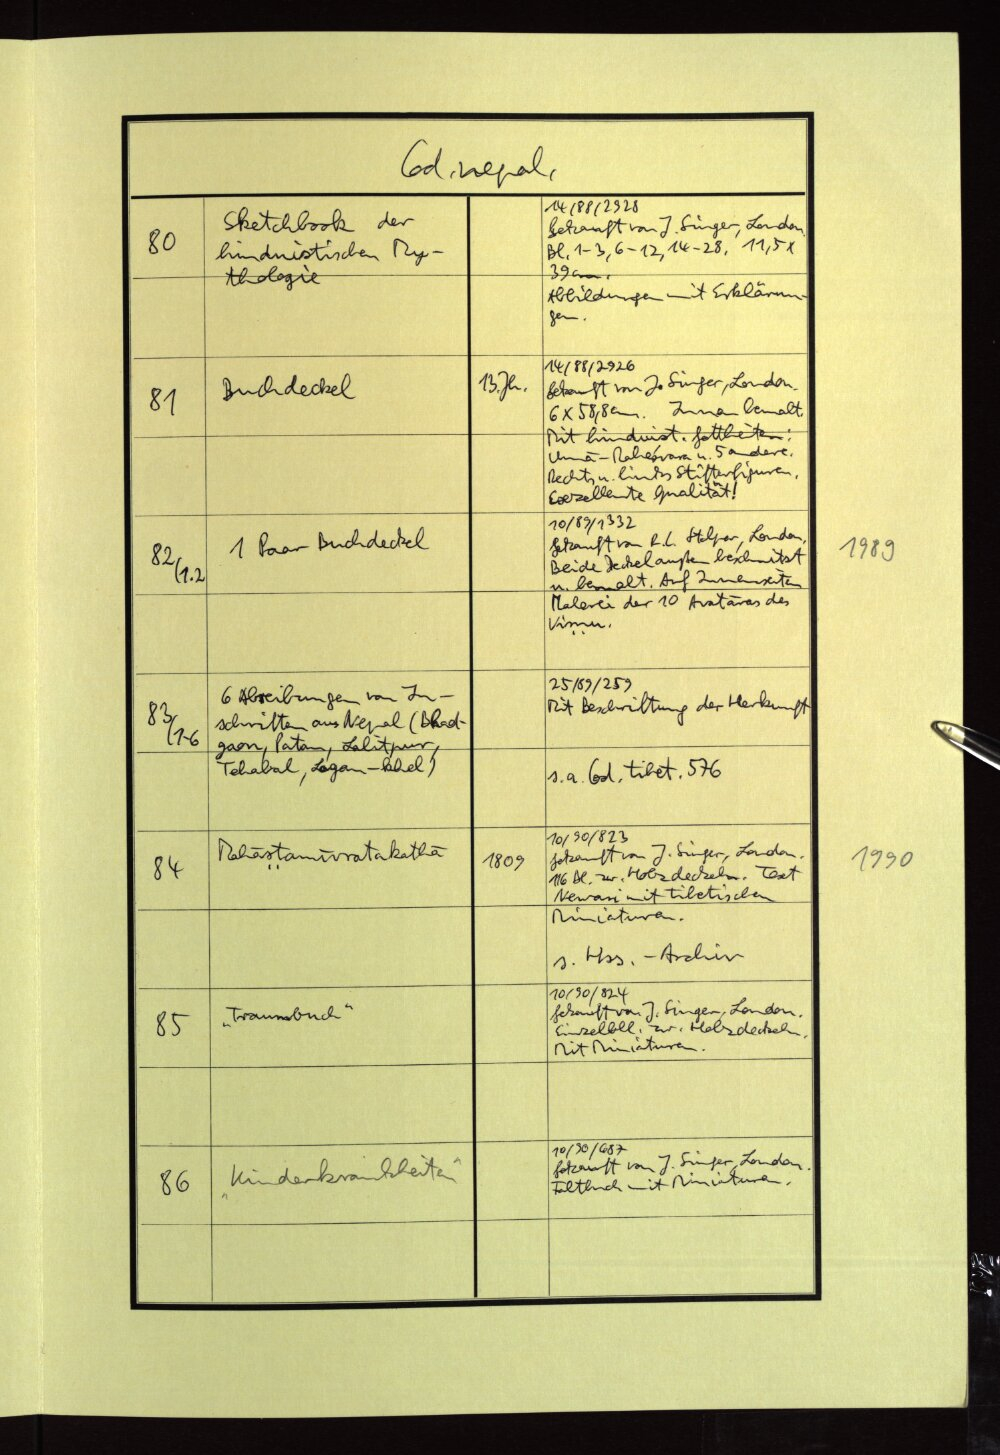 Cod. nepal.
80
Sketchbook der
hinduistischen My-
thologie
14/88/2928
Gekauft von J. Singer, London.
Bl. 1-3, 6-12, 14-28. 11,5 x
39 cm.
Abbildungen mit Erklärun-
gen.
81
Buchdeckel
13. Jh.
14/88/2926
Gekauft von J. Singer, London.
6 x 58,8 cm. Innen bemalt.
Mit hinduist. Gottheiten:
Umā-Maheśvara u. 5 andere.
Rechts u. links Stifterfiguren.
Exzellente Qualität!
82/1.2
1 Paar Buchdeckel
10/89/1332
Gekauft von R.C. London.
Beide Deckel außen beschnitzt
u. bemalt. Auf Innenseiten
Malerei der 10 Avatāras des
Viṣṇu.
1989
83/1-6
6 Abreibungen von In-
schriften aus Nepal (Bhad-
gaon, Patan, Lalitpur,
Tehabal, Logan-khel)
25/89/259
Mit Beschriftung der Herkunft
s.a. Cod. tibet. 576
84
Mahāṣṭamīvratakathā
1809
10/90/823
Gekauft von J. Singer, London.
116 Bl. zw. Holzdeckeln. Text
Newari mit tibetischen
Miniaturen.
s. Hss.-Archiv
1990
85
„Traumbuch“
10/90/824
Gekauft von J. Singer, London.
Einzelbll. zw. Holzdeckeln.
Mit Miniaturen.
86
„Kinderkrankheiten“
10/90/687
Gekauft von J. Singer, London.
Faltbuch mit Miniaturen.